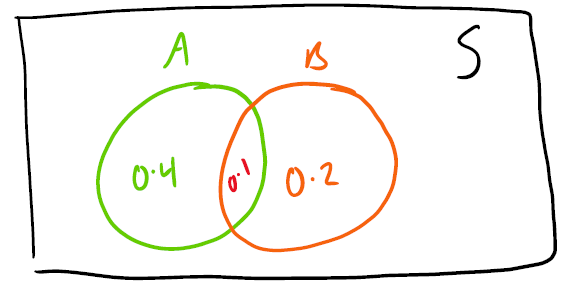 A B S
0.4 0.1 0.2